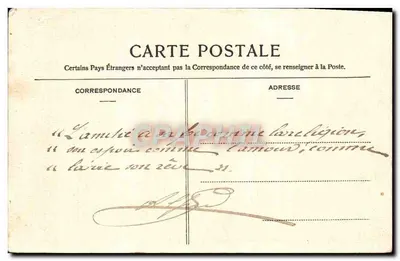 CARTE POSTALE
Certains Pays Étrangers n'acceptant pas la Correspondance de ce côté, se renseigner à la Poste.
CORRESPONDANCE
ADRESSE
" L'amitié a comme la religion,
" son espoir comme l'amour, comme
" la vie son rêve "